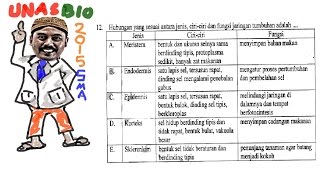 UNAS BIO
2015 SMA
12. Hubungan yang sesuai antara jenis, ciri-ciri dan fungsi jaringan tumbuhan adalah ....
Jenis Ciri-ciri Fungsi
A. Meristem bentuk dan ukuran selnya sama berdinding tipis, protoplasma sedikit, banyak zat makanan menyimpan bahan makan
B. Endodermis satu lapis sel, tersusun rapat, dinding sel mengalami penebalan gabus mengatur proses pertumbuhan dan pembelahan sel
C. Epidermis satu lapis sel, tersusun rapat, bentuk balok, dinding sel tipis, berkloroplas melindungi jaringan di dalamnya dan tempat berfotosintesis
D. Korteks sel hidup berdinding tipis dan tidak rapat, bentuk bulat, vakuola besar menyimpan cadangan makanan
E. Sklerenkim bentuk sel tidak beraturan dan berdinding tipis penunjang tanaman agar batang menjadi kokoh